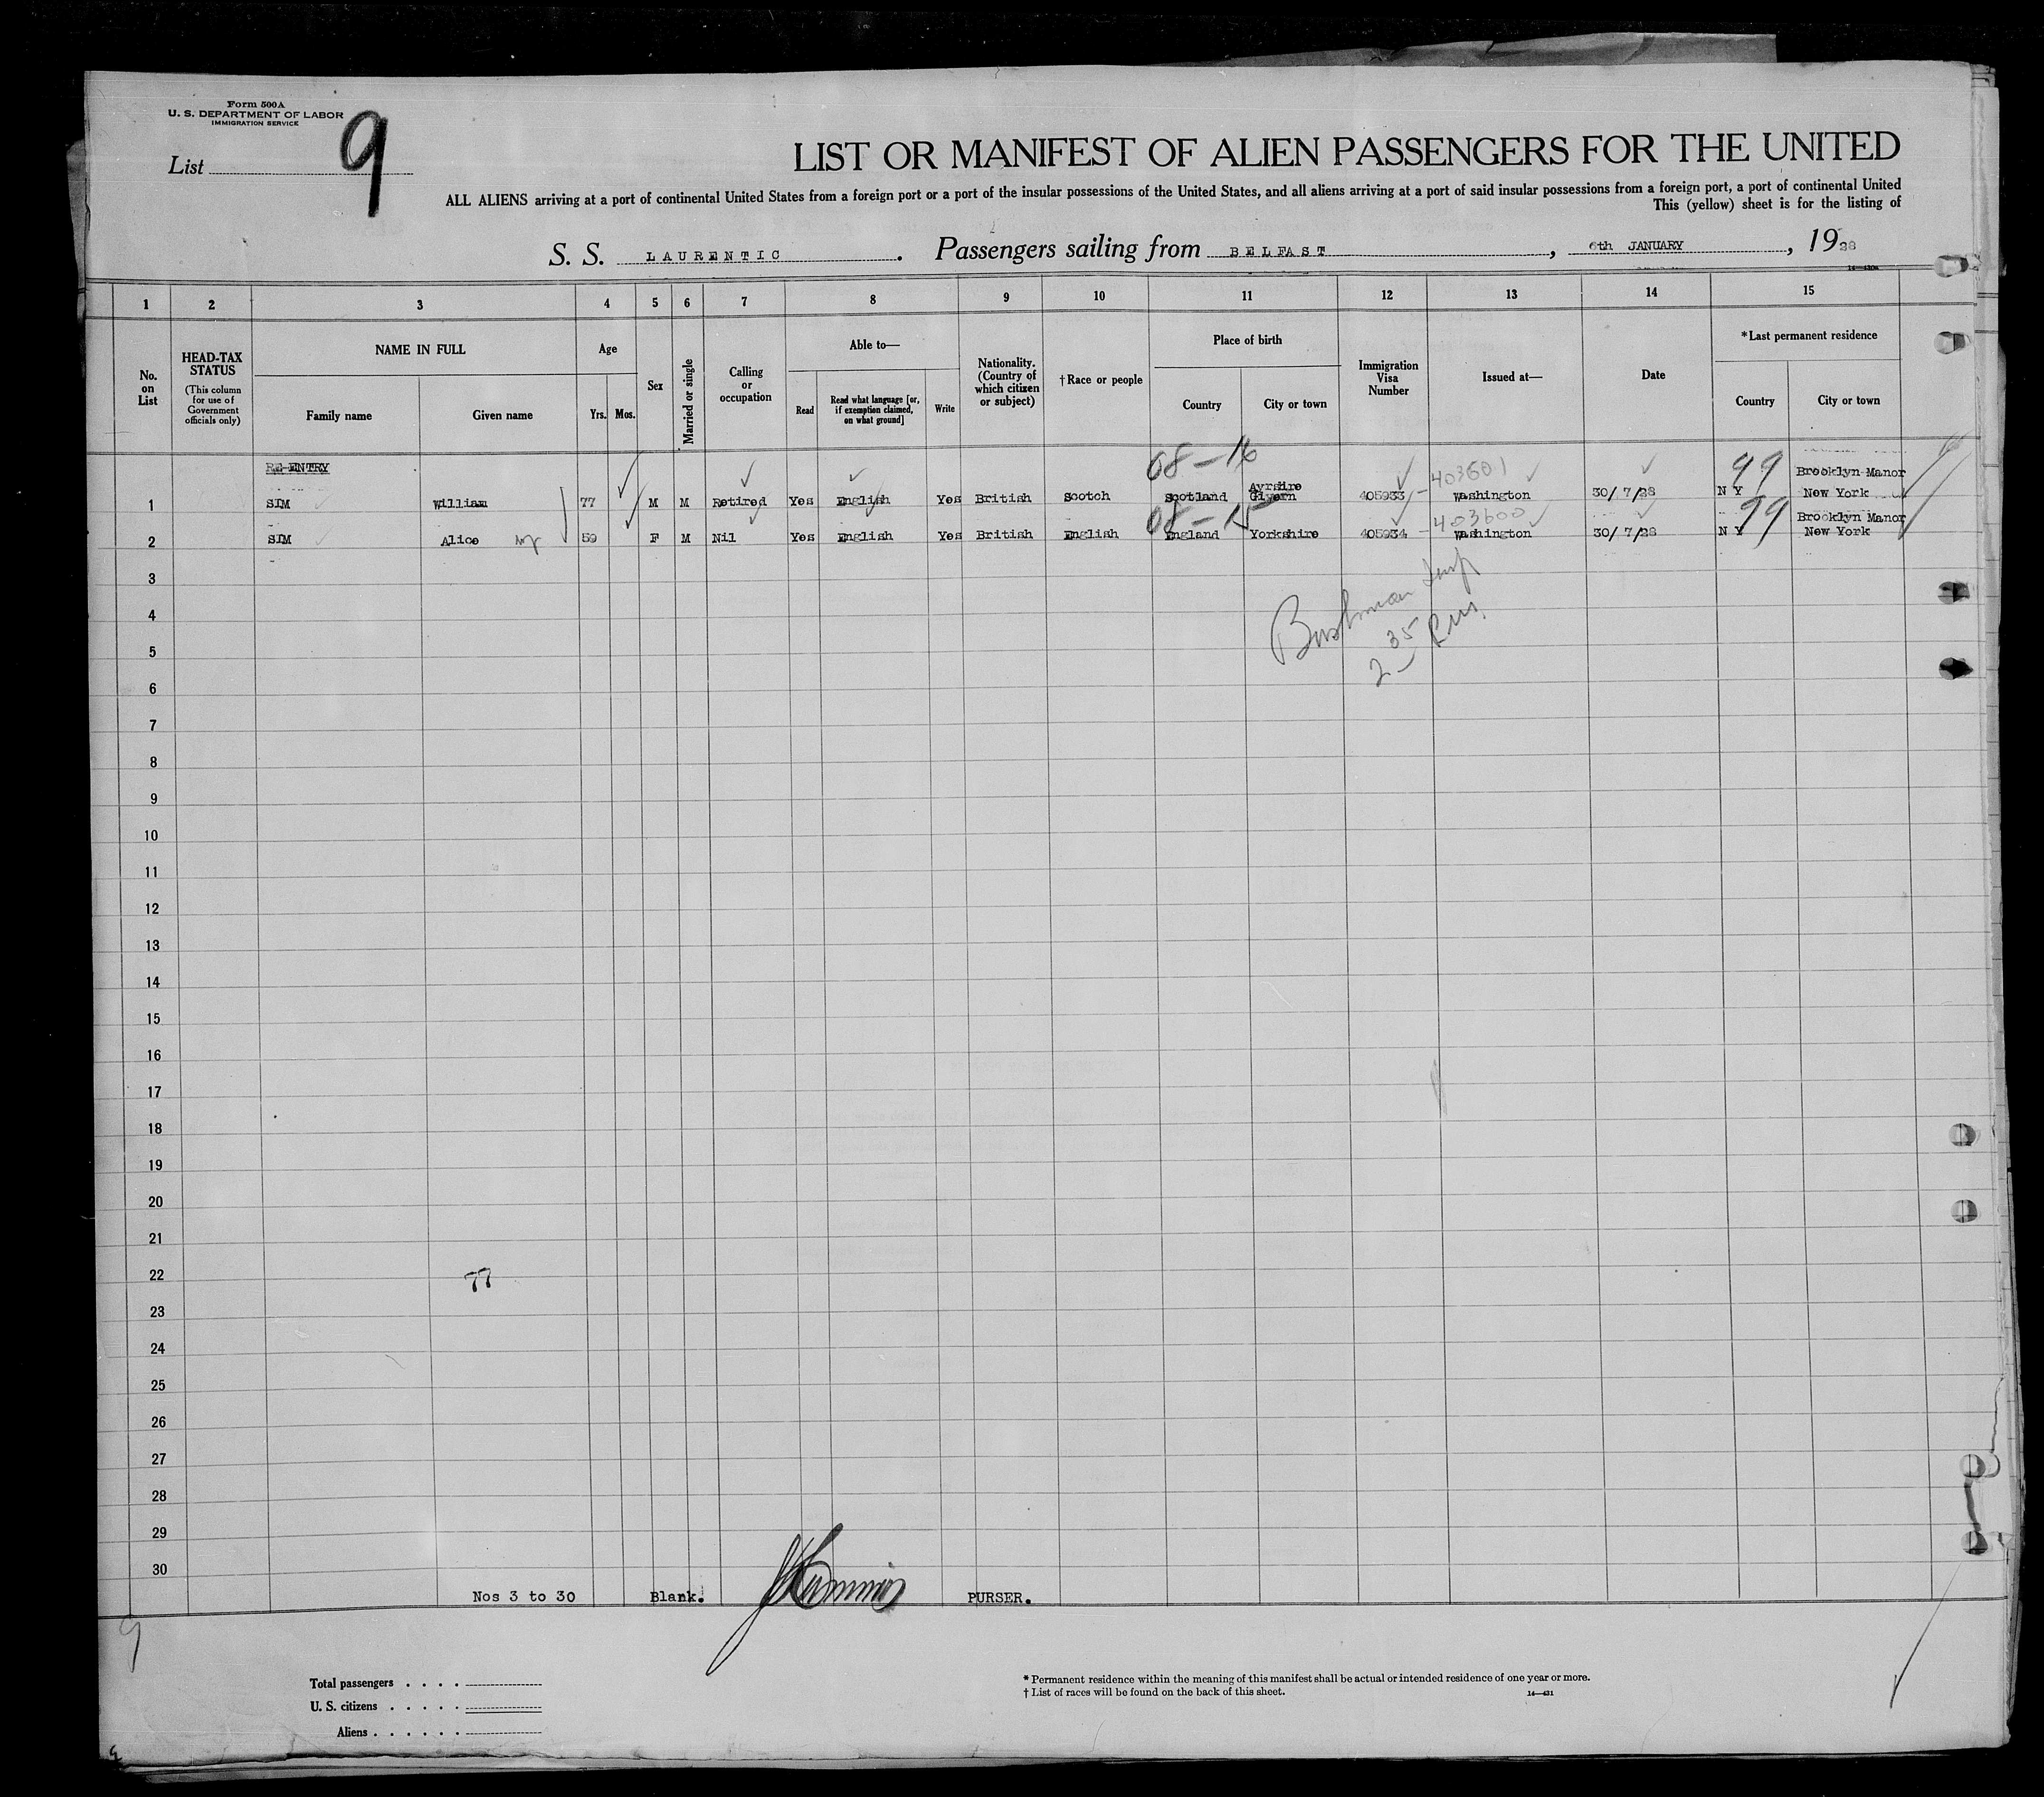 Form 500A
U. S. DEPARTMENT OF LABOR
IMMIGRATION SERVICE
List 9
LIST OR MANIFEST OF ALIEN PASSENGERS FOR THE UNITED
ALL ALIENS arriving at a port of continental United States from a foreign port or a port of the insular possessions of the United States, and all aliens arriving at a port of said insular possessions from a foreign port, a port of continental United
This (yellow) sheet is for the listing of
S. S. LAURENTIC. Passengers sailing from BELFAST, 6th JANUARY, 19
1 2 3 4 5 6 7 8 9 10 11 12 13 14 15
No. on List
HEAD-TAX STATUS
(This column for use of Government officials only)
NAME IN FULL
Family name
Given name
Age
Yrs.
Mos.
Sex
Married or single
Calling or occupation
Able to—
Read
Read what language [or, if exemption claimed, on what ground]
Write
Nationality. (Country of which citizen or subject)
†Race or people
Place of birth
Country
City or town
Immigration Visa Number
Issued at—
Date
*Last permanent residence
Country
City or town
RE-ENTRY
08-16
403601
99
Brooklyn Manor
1 SIM William 77 M M Retired Yes English Yes British Scotch Scotland 405933 Washington 30/ 7/28 N Y New York
08-15
403600
99
Brooklyn Manor
2 SIM Alice 59 F M Nil Yes English Yes British English England Yorkshire 405934 Washington 30/ 7/28 N Y New York
3
4
5
6
7
8
9
10
11
12
13
14
15
16
17
18
19
20
21
22 77
23
24
25
26
27
28
29
30
Nos 3 to 30 Blank. PURSER.
9
Total passengers . . . .
U. S. citizens . . . . .
Aliens . . . . . .
* Permanent residence within the meaning of this manifest shall be actual or intended residence of one year or more.
† List of races will be found on the back of this sheet.
14—431